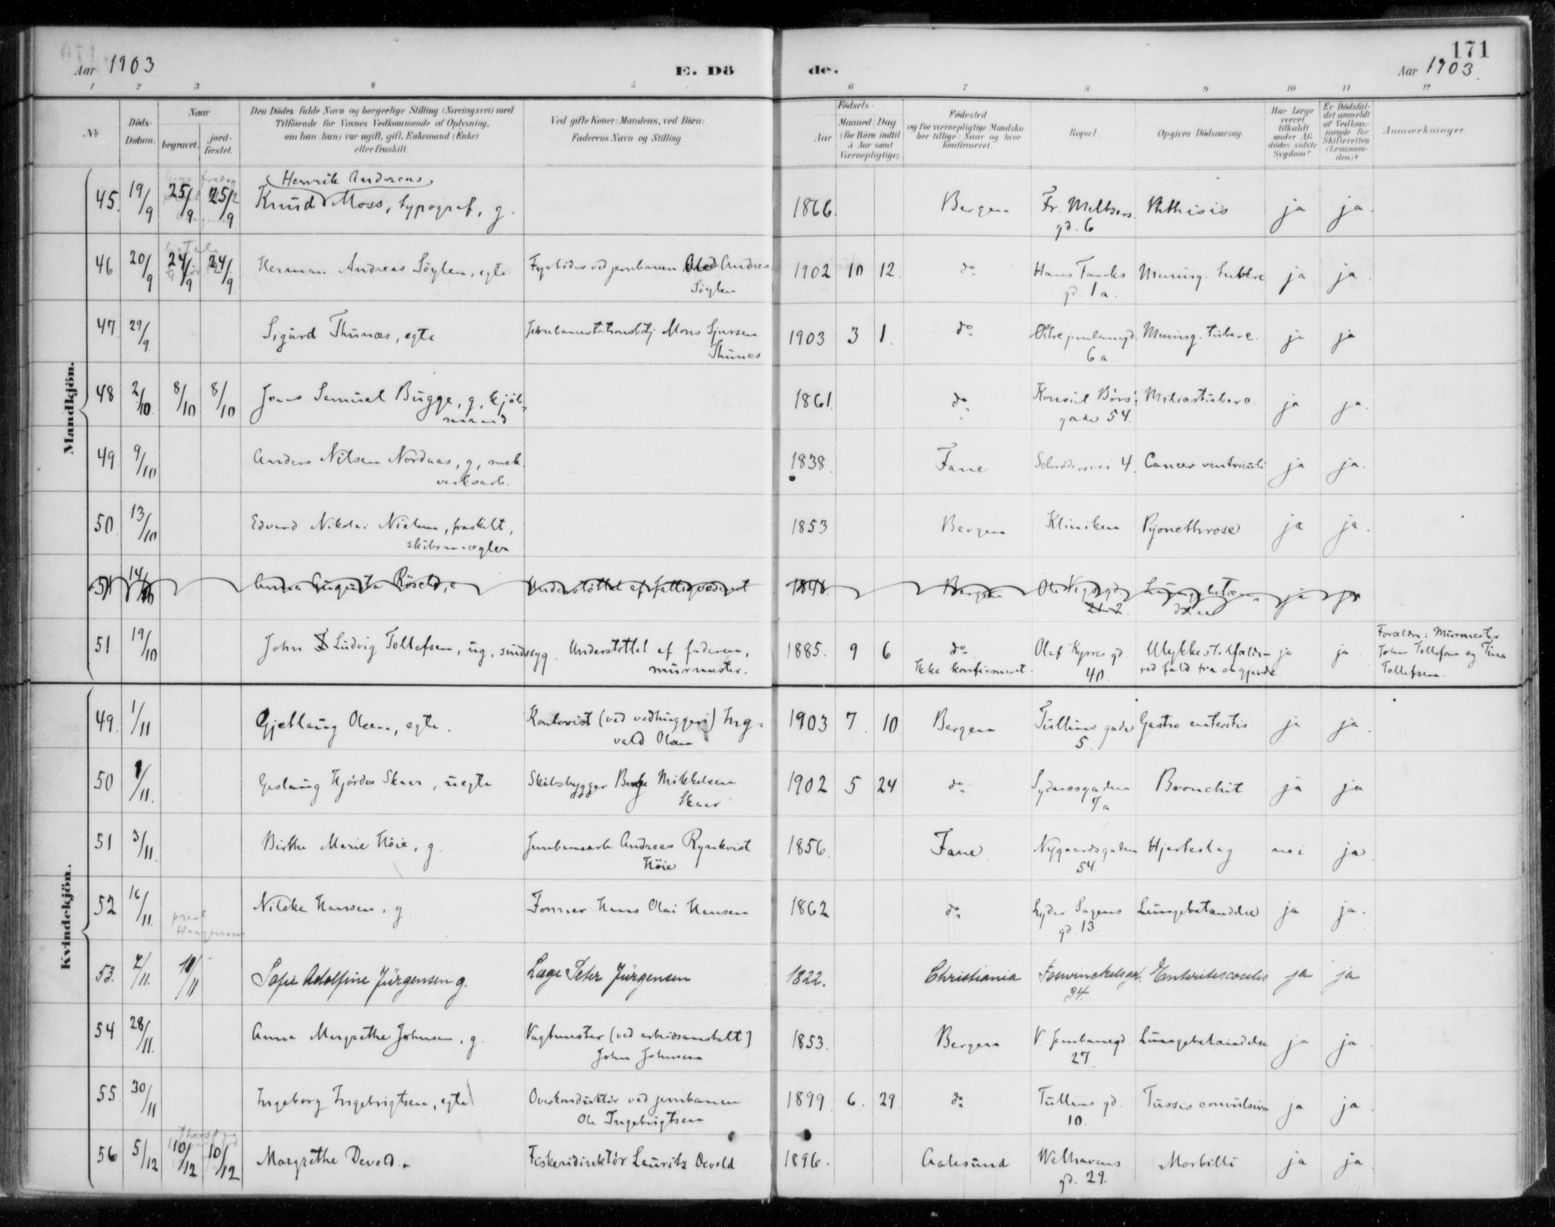 171
Aar 1903
E. Döde.
Aar 1903.
1 2 3 4 5 6 7 8 9 10 11 12
No
Döds-Datum.
Naar
begravet.
jord-fæstet.
Den Dödes fulde Navn og borgerlige Stilling (Næringsvei) med
Tilføiende for Voxnes Vedkommende af Oplysning,
om han (hun) var ugift, gift, Enkemand (Enke)
eller fraskilt.
Ved gifte Koner: Mandens, ved Börn:
Faderens Navn og Stilling
Födsels-
Aar
Maaned Dag
(for Börn indtil
5 Aar samt
Værnepligtige).
Födested
og for værnepligtige Mandskaber tillige: Naar og hvor
konfirmeret.
Bopæl.
Opgiven Dödsaarsag.
Har Læge
været
tilkaldt
under Afdödes sidste
Sygdom?
Er Dödsfaldet anmeldt
af Vedkommende for
Skifteretten
(Lensmanden)?
Anmærkninger.
Mandkjön.
Henrik Andreas
45. 19/9 25/9 25/9 Knud Moss, typograf, g. 1866 Bergen Fr. Meltzers gd. 6 Phthisis ja ja.
46 20/9 24/9 24/9 Herman Andreas Söylen, egte Fyrböder ved jernbanen Andreas Söylen 1902 10 12. do Hans Tanks gd. 1a. Mening. tuberc. ja ja
47 29/9 Sigurd Thunæs, egte Jernbanestationsbtj Mons Sjursen Thunæs 1903 3 1. do 6a Mening. tuberc. ja ja
48 2/10 8/10 8/10 Jens Samuel Bugge, g, kjöbmand 1861 do Konsul Börs' gade 54. Miliartuberc. ja ja.
49. 9/10 Anders Nilsen Nordaas, g, mek. verksarb. 1838. Fane 4. Cancer ventriculi ja ja.
50. 13/10 Edvard Nikolai Nielsen, fraskilt, skibsmægler 1853 Bergen Kliniken Pyonephrose ja ja.
51 14/10 Anna Augusta Understöttet af fattigvæsenet 1848. Bergen ja ja
51 19/10 John Ludvig Tollefsen, ug, sindssyg. Understöttet af faderen, murmester. 1885. 9 6 do Ikke konfirmeret. Olaf Kyrres gd. 40. Ulykkestilfælde ved fald fra et gjerde ja ja. Forældre: Murmester John Tollefsen og Tina Tollefsen.
Kvindekjön.
49. 1/11 Gjetlaug Olsen, egte. Kontorist (ved vedhuggeri) Ingvald Olsen 1903 7. 10 Bergen Tullins gade 5 Gastro enteritis ja ja.
50 1/11. Hjördis Skaar, uegte Skibsbygger Mikkelsen Skaar 1902 5 24 do Sydnæsgaden 7/a Bronchit ja ja
51 3/11. Birthe Marie Höie, g. Jernbanearb. Andreas Rynkvist Höie 1856. Fane Nygaardsgaden 54. Hjerteslag nei ja.
52 16/11. Hansen, g Hans Olai Hansen 1862 do Lyder Sagens gd. 13. Lungebetændelse ja ja.
53. 7/11. 10/11 Adolfine Jürgensen g. Læge Peter Jürgensen 1822. Christiania 34. ja ja
54 28/11. Anna Margrethe Johnsen, g. Vagtmester (ved arbeidsanstalt) John Johnsen 1853. Bergen V. Jernbanegd. 27. Lungebetændelse ja ja.
55. 30/11 Ingeborg Ingebrigtsen, egte Overkonduktör ved jernbanen Ole Ingebrigtsen 1899 6. 29 do Tullins gd. 10. Tussis convulsiva ja ja.
56 5/12 10/12 10/12 Margrethe Devold. Fiskeridirektör Lauritz Devold 1896. Aalesund Welhavens gd. 29. Morbilli ja ja.